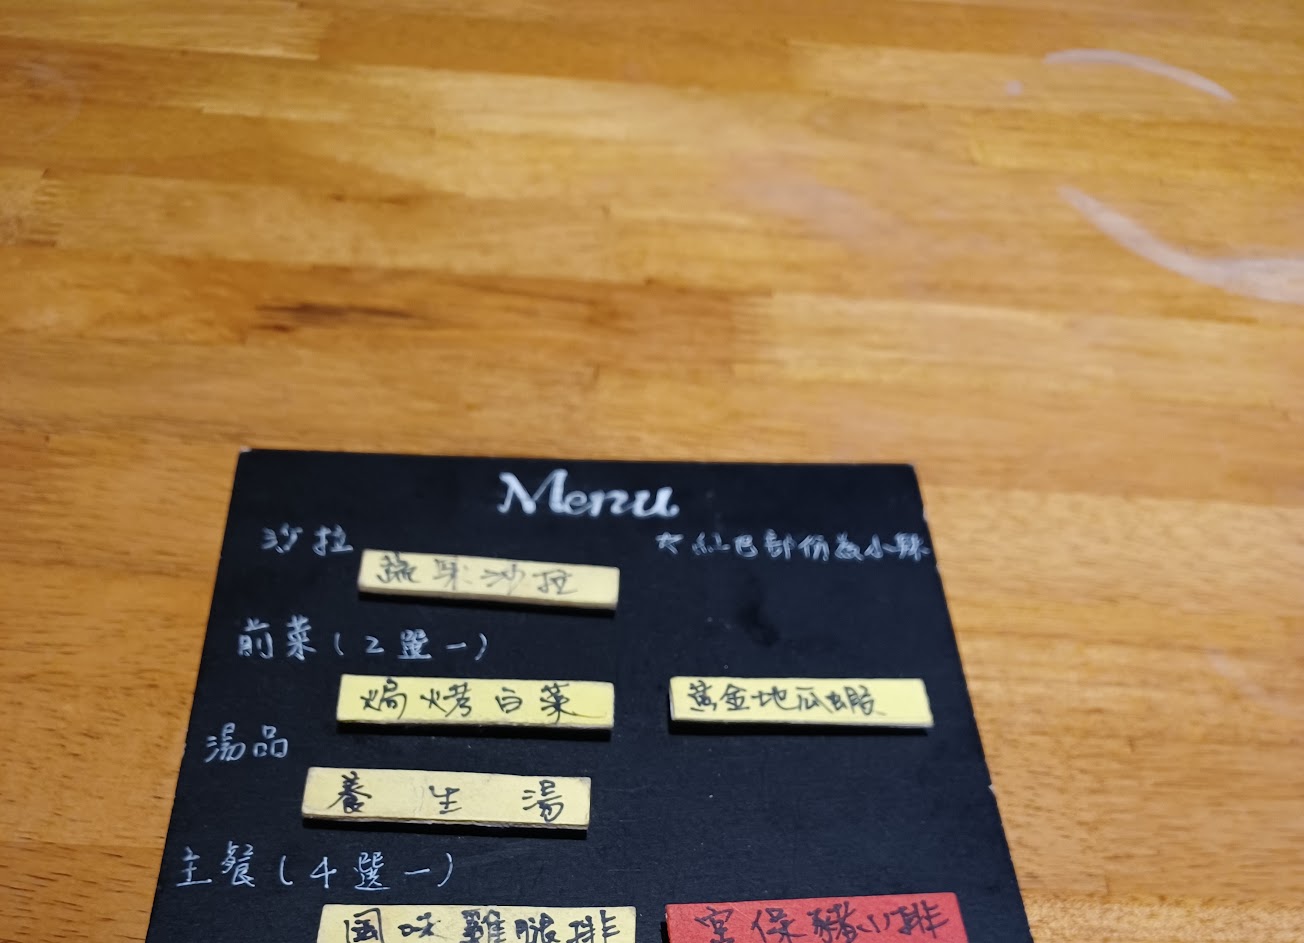 Menu
沙拉
*紅色部份為小辣
蔬果沙拉
前菜(2選一)
焗烤白菜
黃金地瓜蝦
湯品
養生湯
主餐(4選一)
風味雞腿排
宮保豬小排